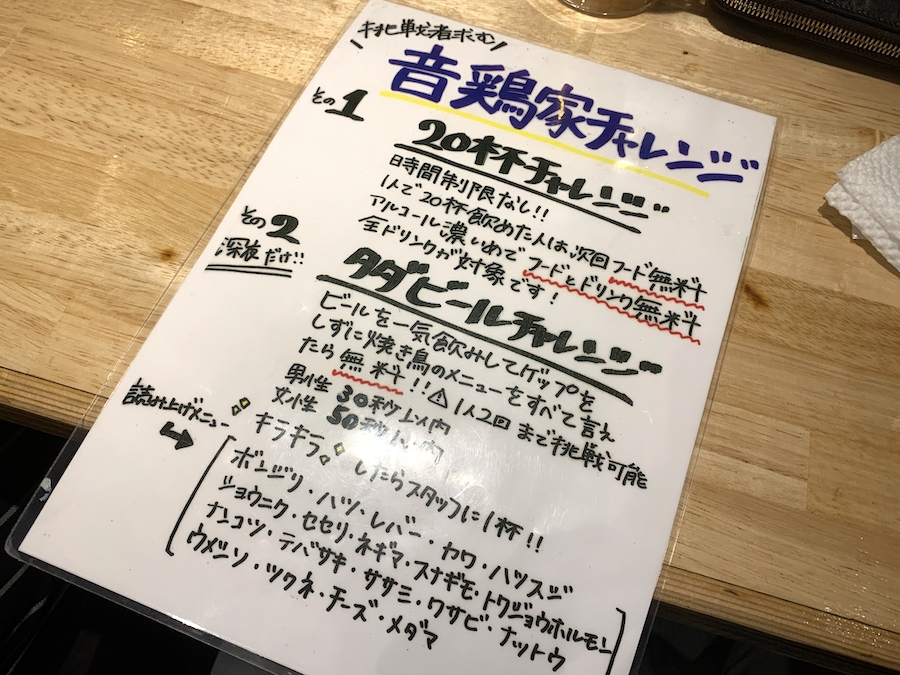 挑戦者求む
音鶏家チャレンジ
その1
20杯チャレンジ
時間制限なし!!
1人で20杯飲めた人は次回フード無料
アルコール濃いめでフードとドリンク無料
全ドリンクが対象です!
その2
深夜だけ!!
タダビールチャレンジ
ビールを一気飲みしてゲップを
しずに焼き鳥のメニューをすべて言え
たら無料!!⚠1人2回まで挑戦可能
男性 30秒以内
女性 50秒以内
キラキラしたらスタッフに1杯!!
読み上げメニュー
ボンジリ・ハツ・レバー・カワ・ハツスジ
ショウニク・セセリ・ネギマ・スナギモ・トワジョウホルモン
ナンコツ・テバサキ・ササミ・ワサビ・ナットウ
ウメシソ・ツクネ・チーズ・メダマ